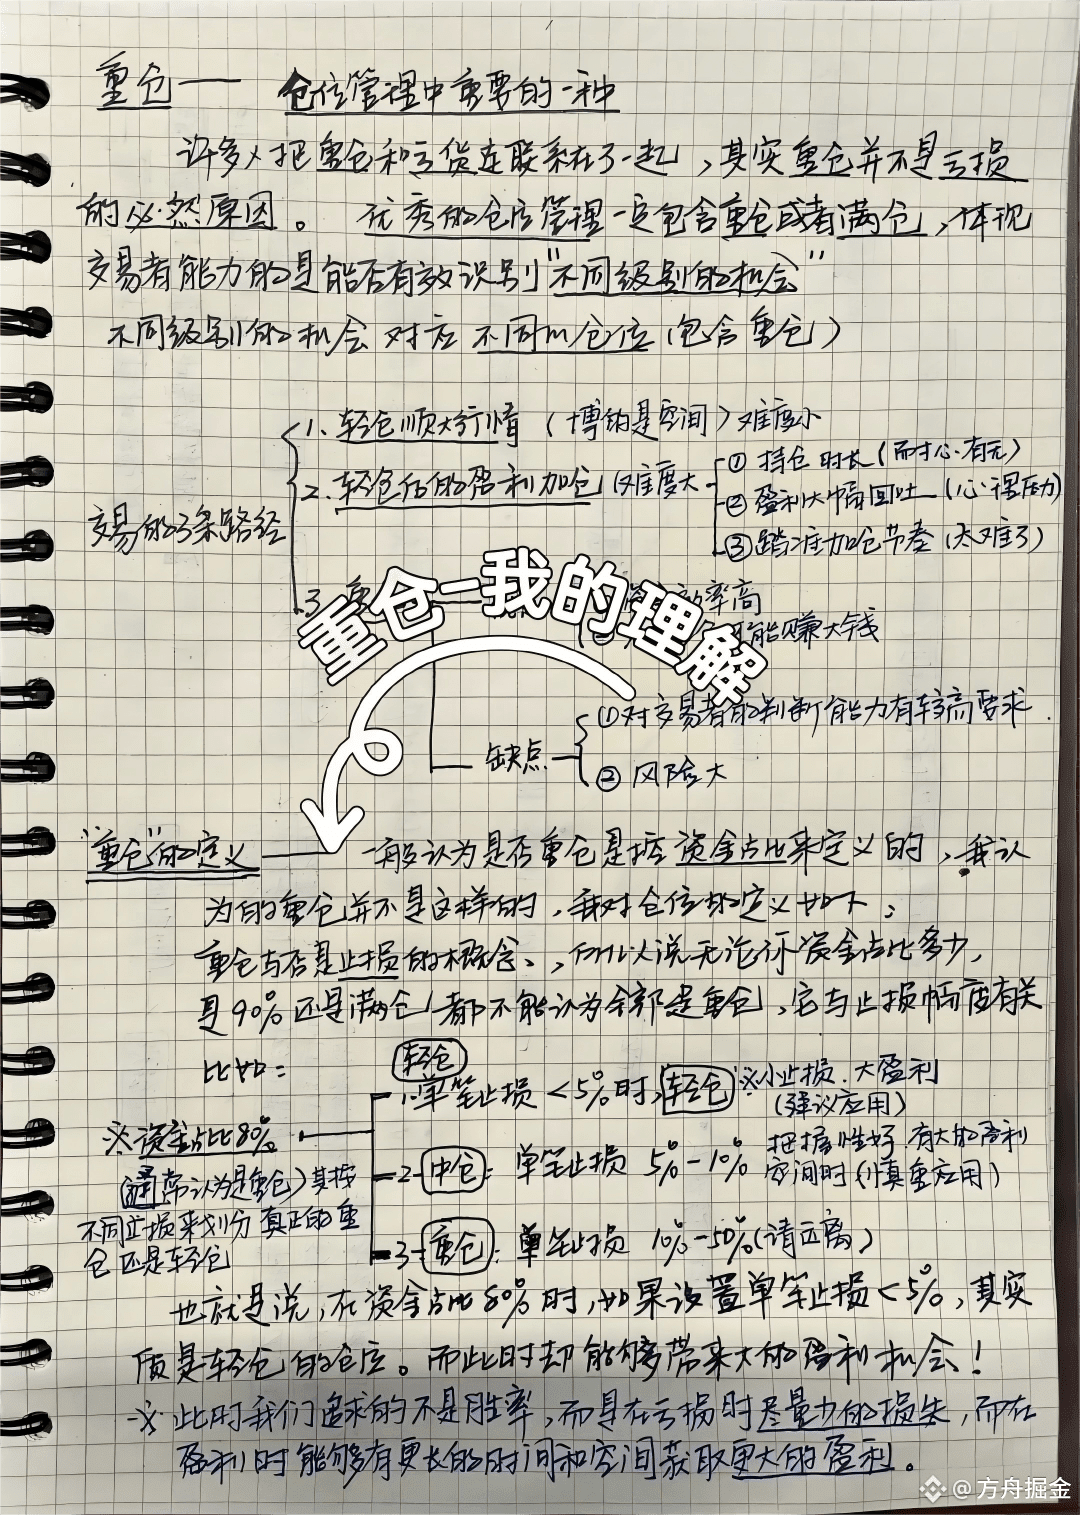 重仓—— 仓位管理中重要的一种
许多人把重仓和亏货连联系在了一起，其实重仓并不是亏损
的必然原因。优秀的仓位管理一定包含重仓或者满仓，体现
交易者能力的是能否有效识别“不同级别的机会”
不同级别的机会对应不同的仓位（包含重仓）
交易的3条路径
1、轻仓顺大行情（博的是空间）难度小
2、轻仓后的盈利加仓（难度大
① 持仓时长（耐心有无）
② 盈利大幅回吐（心理压力）
③ 踏准加仓节奏（太难了）
3
率高
能赚大钱
重仓-我的理解
缺点
① 对交易者的判断能力有较高要求.
② 风险大
“重仓”的定义——一般认为是否重仓是按资金占比来定义的，我认
为的重仓并不是这样的，我对仓位的定义如下：
重仓与否是止损的概念、，所以说无论你资金占比多少，
是90%还是满仓（都不能认为全部是重仓），它与止损幅度有关
比如：
※资金占比80%
（通常认为是重仓）其按
不同止损来划分真正的重
仓还是轻仓
轻仓
1.单笔止损<5%时，轻仓 ※小止损.大盈利
（建议应用）
2-中仓：单笔止损 5%-10% 把握性好.有大的盈利
空间时（慎重应用）
3-重仓：单笔止损 10%-50%（请远离）
也就是说，在资金占比80%时，如果设置单笔止损<5%，其实
质是轻仓的仓位。而此时却能够带来大的盈利机会！
※此时我们追求的不是胜率，而是在亏损时尽量少的损失，而在
盈利时能够有更长的时间和空间获取更大的盈利。
@方舟掘金